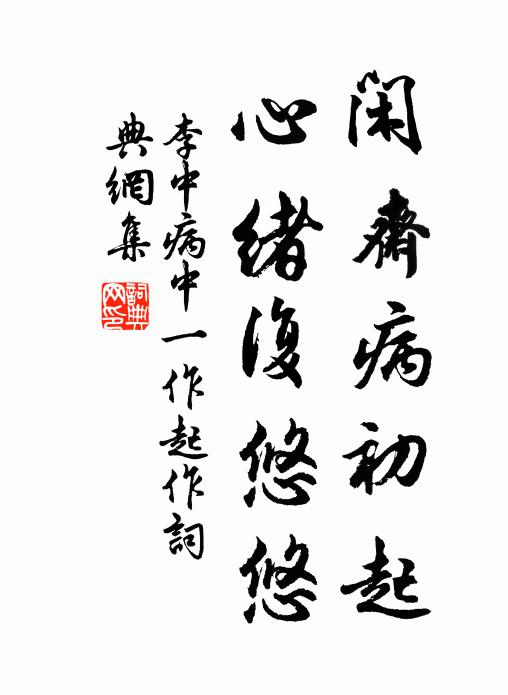 閑齋病初起
心緒復悠悠
李中病中一作起作詞
典網集
詞典网印